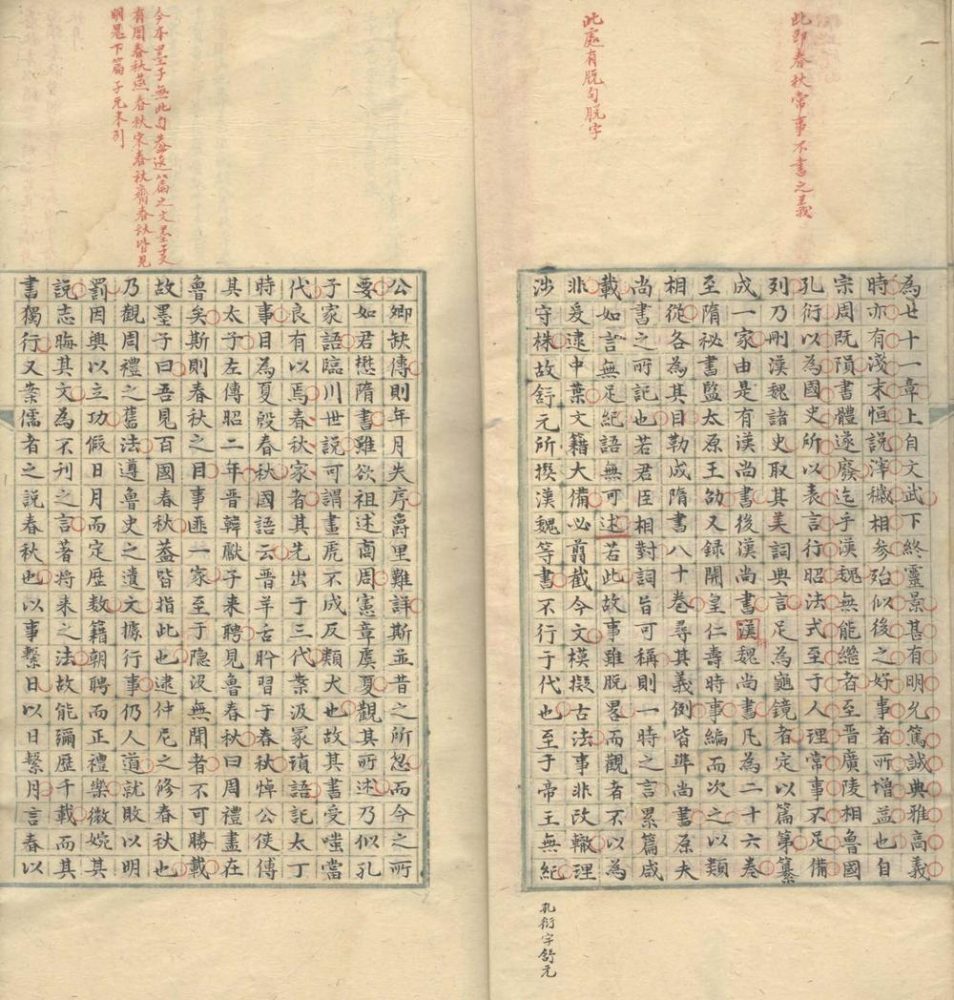 此即春秋常事不書之義
此處有脱句脱字
為廿十一章上自文武下終靈景甚有明允篤誠典雅高義
時亦有淺末恒說滓穢相參殆似後之好事者所增益也自
宗周既隕書體遂廢迄乎漢魏無能繼者至晉廣陵相魯國
孔衍以為國史所以表言行昭法式至于人理常事不足備
列乃刪漢魏諸史取其美詞典言足為龜鏡者定以篇第纂
成一家由是有漢尚書後漢尚書漢魏尚書凡為二十六卷
至隋祕書監太原王劭又録開皇仁壽時事編而次之以類
相從各為其目勒成隋書八十卷尋其義例皆準尚書原夫
尚書之所記也若君臣相對詞旨可稱則一時之言累篇咸
載如言無足紀語無可述若此故事雖脱畧而觀者不以為
非爰逮中葉文籍大備必翦截今文模擬古法事非改轍理
涉守株故舒元所撰漢魏等書不行于代也至于帝王無紀
孔衍字舒元
今本墨子無此句蓋逸篇之文墨子
有周春秋燕春秋宋春秋齊春秋皆見
明鬼下篇子元未引
公卿缺傳則年月失序爵里難詳斯並昔之所忽而今之所
要如君懋隋書雖欲祖述商周憲章虞夏觀其所述乃似孔
子家語臨川世說可謂畫虎不成反類犬也故其書受嗤當
代良有以焉春秋家者其先出于三代案汲冢瑣語記太丁
時事目為夏殷春秋國語云晉羊舌肸習于春秋悼公使傅
其太子左傳昭二年晉韓獻子来聘見魯春秋曰周禮盡在
魯矣斯則春秋之目事匪一家至于隐沒無聞者不可勝載
故墨子曰吾見百國春秋葢皆指此也逮仲尼之修春秋也
乃觀周禮之舊法遵魯史之遺文據行事仍人道就敗以明
罰因興以立功假日月而定歷數籍朝聘而正禮樂微婉其
說志晦其文為不刊之言著將来之法故能彌歷千載而其
書獨行又案儒者之說春秋也以事繫日以日繫月言春以